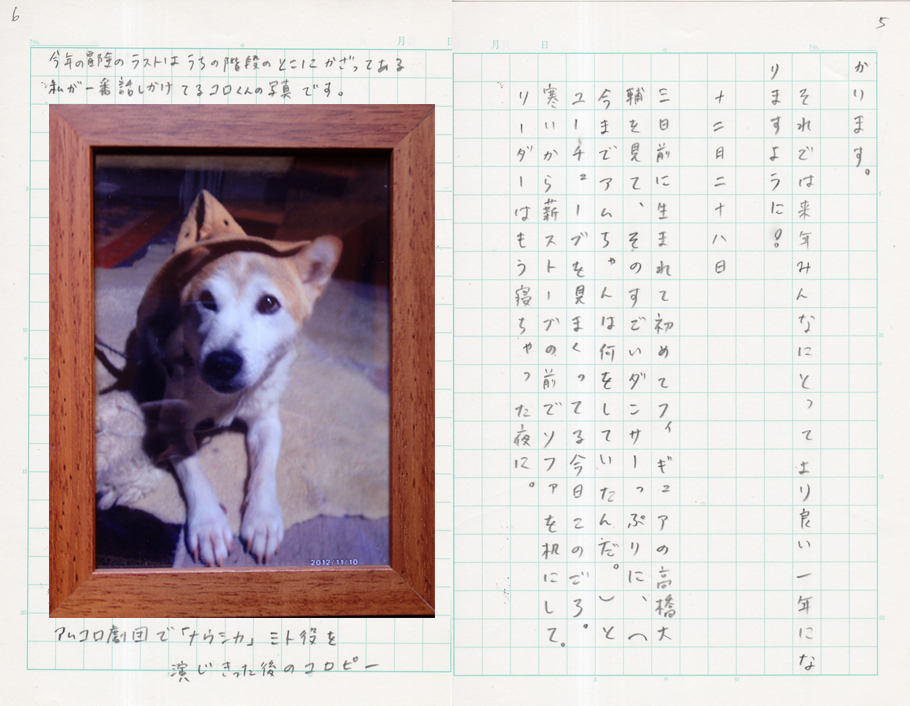 5
かります。
それでは来年みんなにとってより良い一年にな
りますように!
十二日二十八日
三日前に生まれて初めてフィギュアの高橋大
輔を見て、そのすごいダンサーっぷりに、(
今までアムちゃんは何をしていたんだ。)と
ユーチューブを見まくってる今日このごろ。
寒いから薪ストーブの前でソファを机にして。
リーダーはもう寝ちゃった夜に。
月 日
6
今年の のラストはうちの階段のとこにかざってある
私が一番話しかけてるコロくんの写真です。
2012/11/10
アムコロ劇団で「ナウシカ」ミト役を
演じきった後のコロピー
月 日